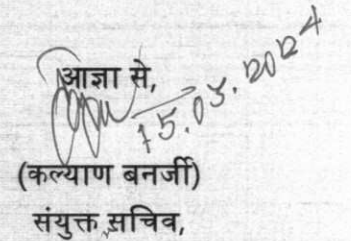 आज्ञा से,
15.03.2024
(कल्याण बनर्जी)
संयुक्त सचिव,